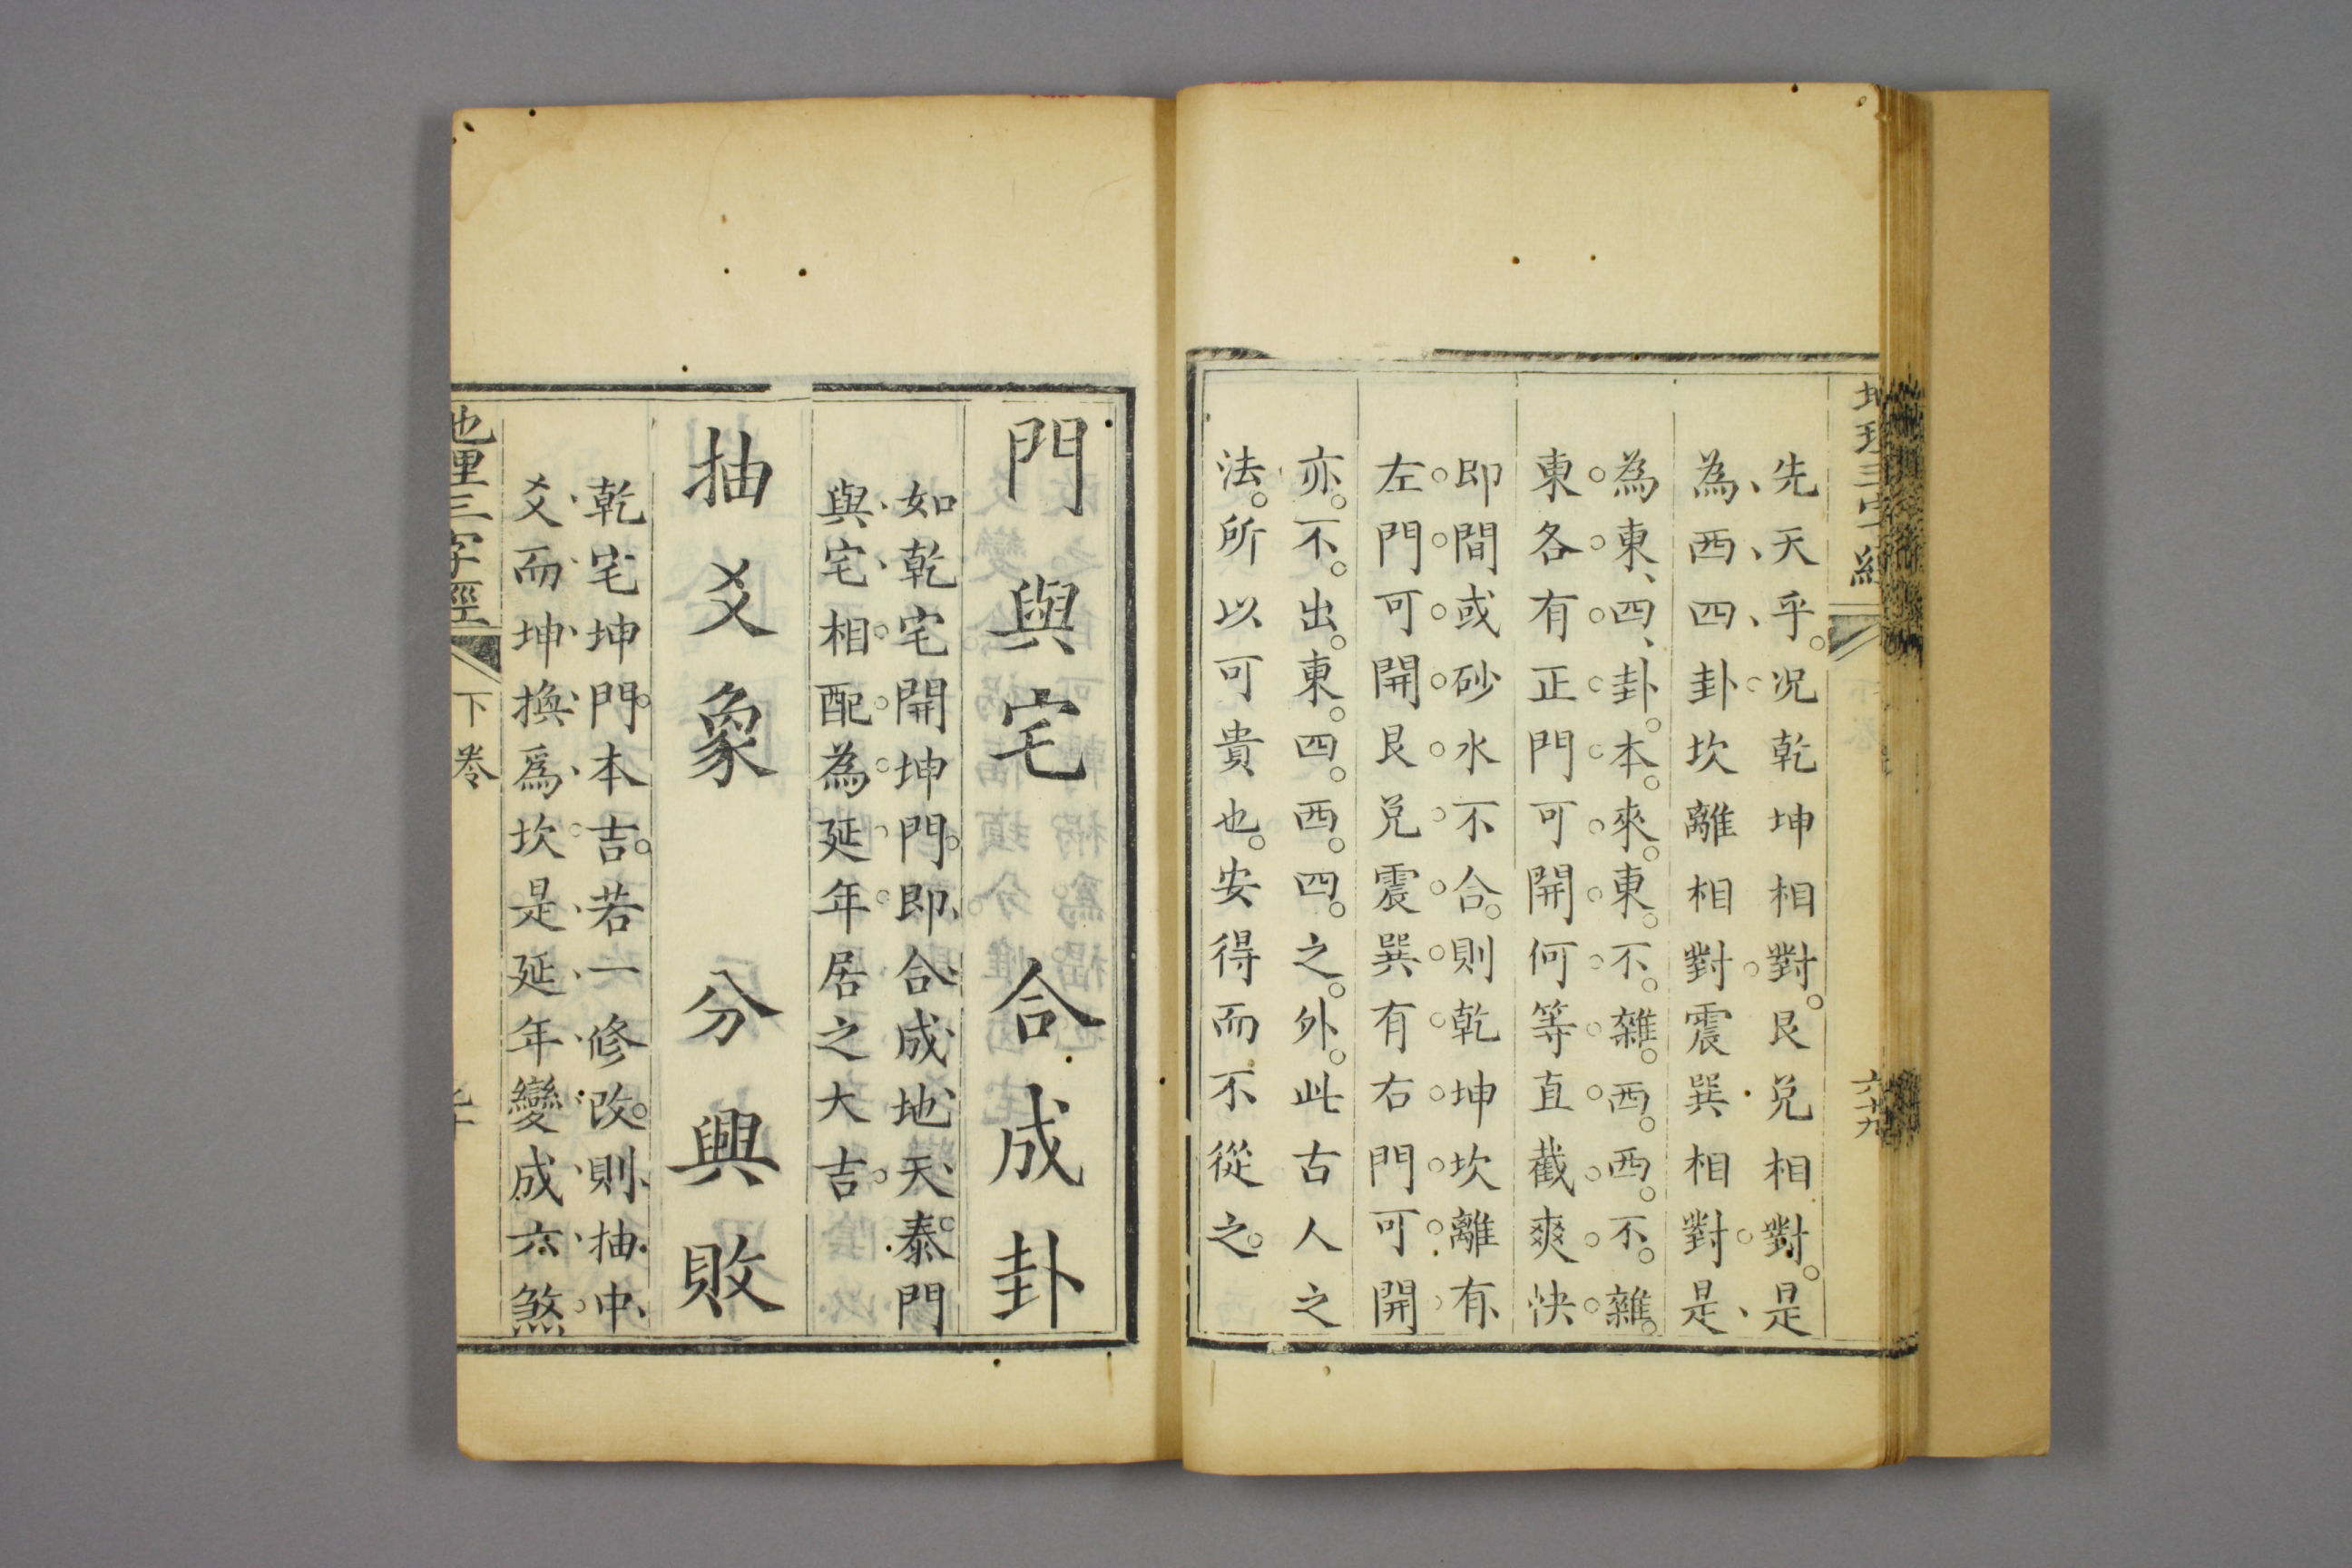 地理三字經
六十九
先天乎況乾坤相對艮兌相對是
為西四卦坎離相對震巽相對是
為東四卦本來東不雜西西不雜
東各有正門可開何等直截爽快
即間或砂水不合則乾坤坎離有
左門可開艮兌震巽有右門可開
亦不出東四西四之外此古人之
法所以可貴也安得而不從之
門與宅合成卦
如乾宅開坤門即合成地天泰門
與宅相配為延年居之大吉
抽爻象分興敗
乾宅坤門本吉若一修改則抽中
爻而坤換爲坎是延年變成六煞
地理三字經
下卷